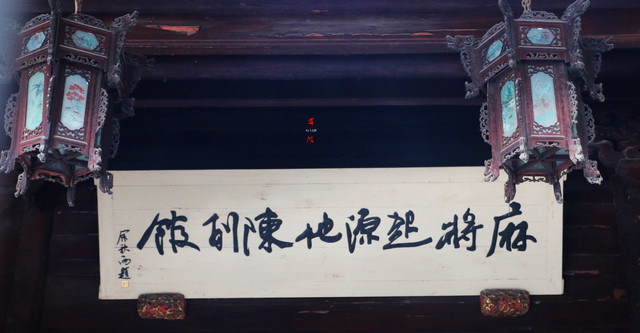 麻將起源地陳列館